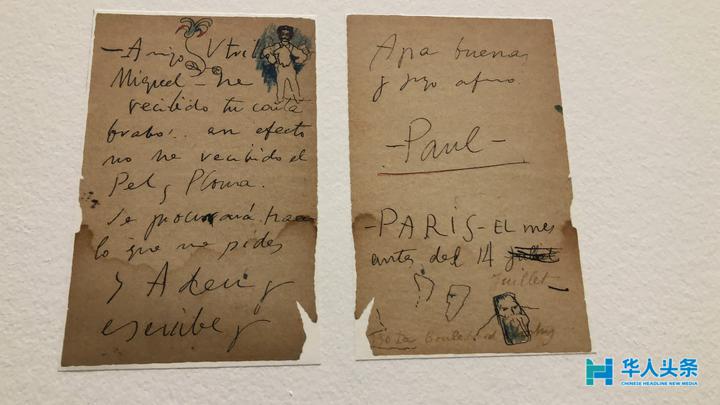 -Amigo Utrillo
Miguel - he
recibido tu carta
brabo!. en efecto
no he recibido el
Pel y Ploma.
Se procurará
lo que me pides
y Adeu y
escribe y
buena
y
-Paul-
-PARIS- EL mes
antes del 14
Juillet
130
华人头条
CHINESE HEADLINE NEW MEDIA